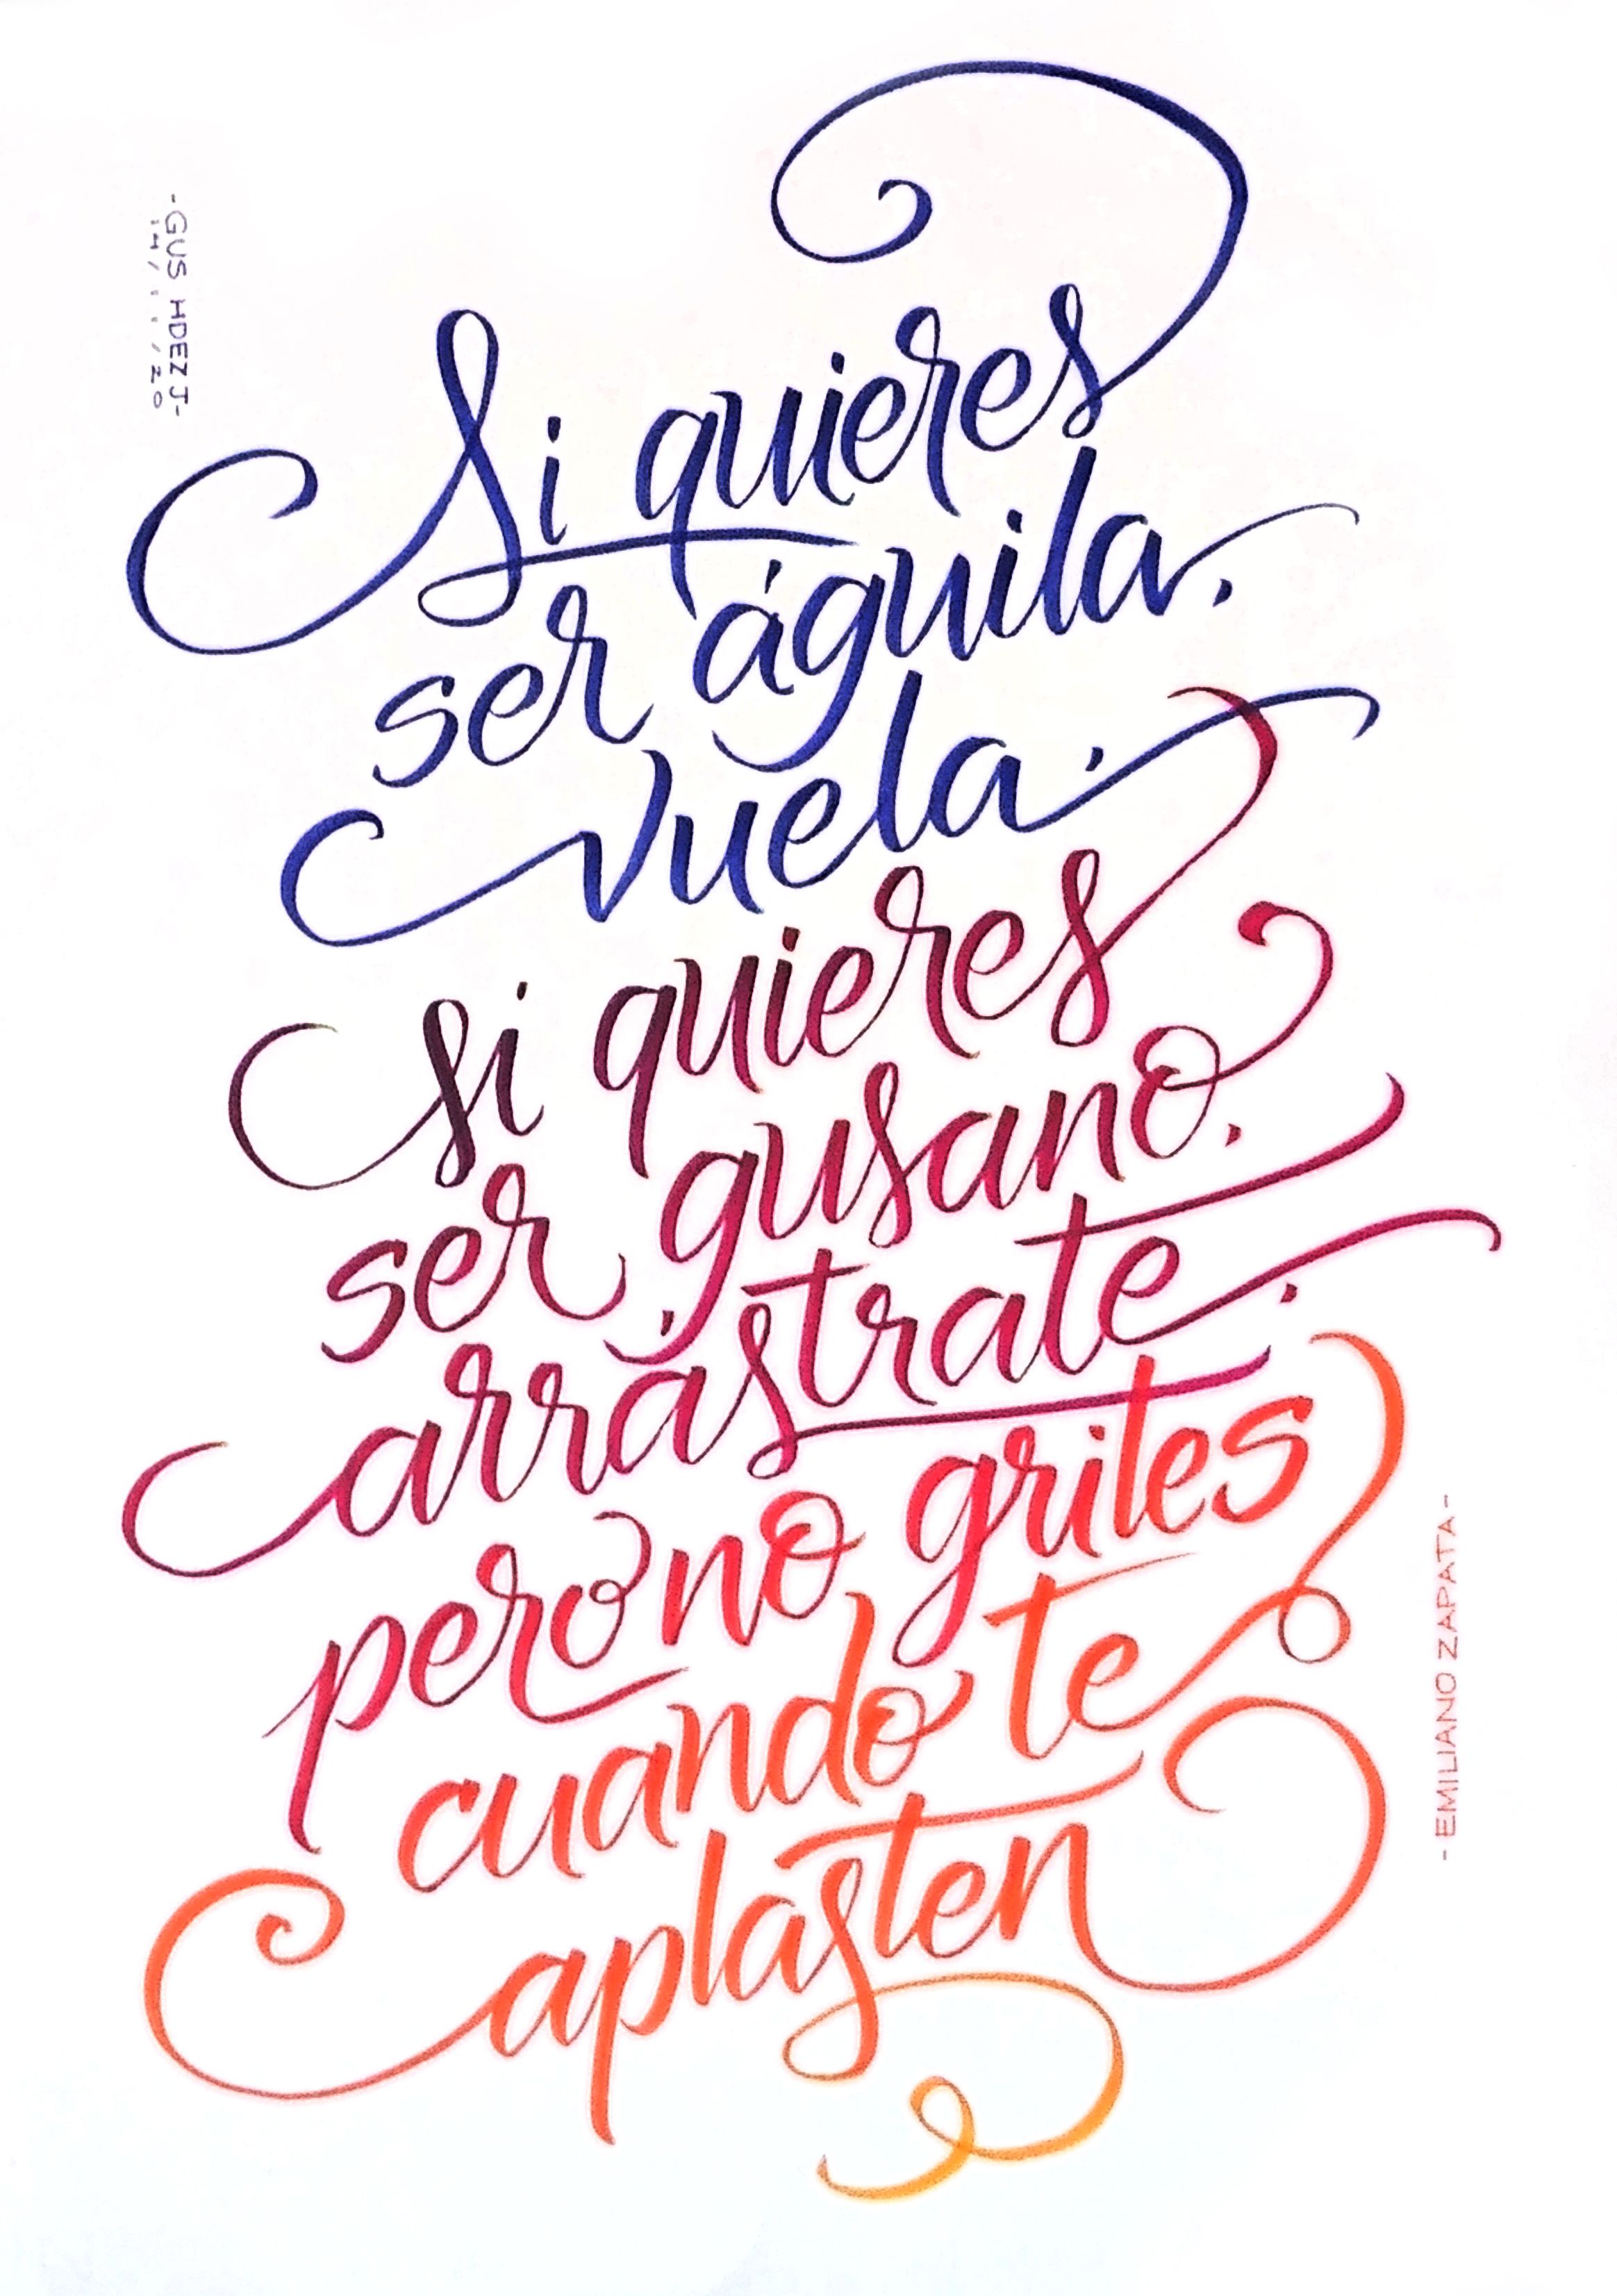 -GUS HDEZ J-
14/11/20
Si quieres
ser águila,
vuela.
si quieres
ser gusano,
arrástrate.
pero no grites
cuando te
aplasten
-EMILIANO ZAPATA-